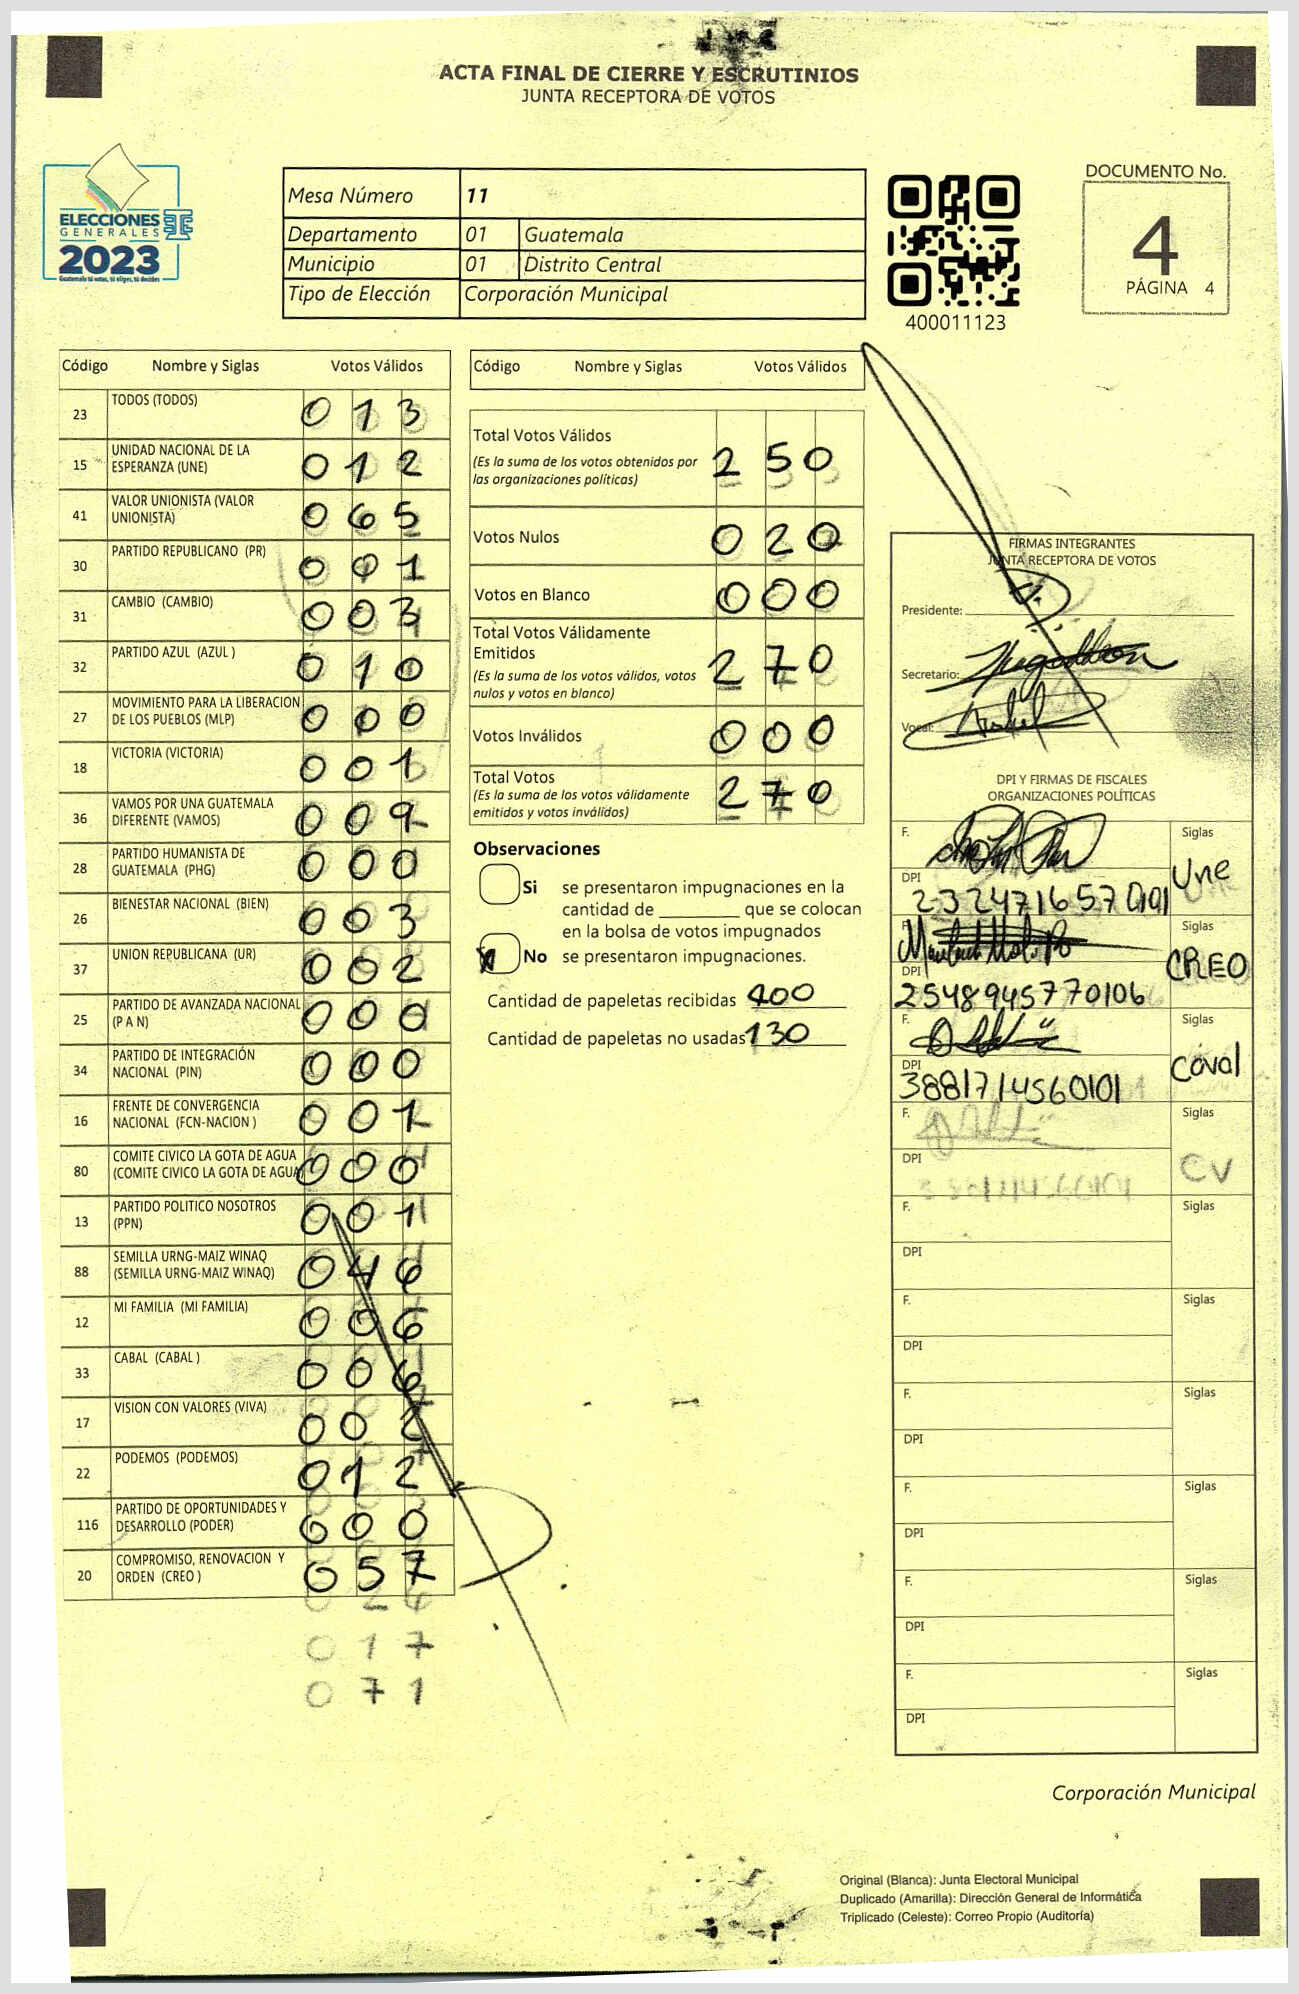 ACTA FINAL DE CIERRE Y ESCRUTINIOS
JUNTA RECEPTORA DE VOTOS
ELECCIONES
GENERALES
2023
Guatemala tú votas, tú eliges, tú decides
Mesa Número 11
Departamento 01 Guatemala
Municipio 01 Distrito Central
Tipo de Elección Corporación Municipal
400011123
DOCUMENTO No.
4
PÁGINA 4
Código Nombre y Siglas Votos Válidos
23 TODOS (TODOS) 0 1 3
15 UNIDAD NACIONAL DE LA
ESPERANZA (UNE) 0 1 2
41 VALOR UNIONISTA (VALOR
UNIONISTA) 0 6 5
30 PARTIDO REPUBLICANO (PR) 0 0 1
31 CAMBIO (CAMBIO) 0 0 3
32 PARTIDO AZUL (AZUL ) 0 1 0
27 MOVIMIENTO PARA LA LIBERACION
DE LOS PUEBLOS (MLP) 0 0 0
18 VICTORIA (VICTORIA) 0 0 1
36 VAMOS POR UNA GUATEMALA
DIFERENTE (VAMOS) 0 0 9
28 PARTIDO HUMANISTA DE
GUATEMALA (PHG) 0 0 0
26 BIENESTAR NACIONAL (BIEN) 0 0 3
37 UNION REPUBLICANA (UR) 0 0 2
25 PARTIDO DE AVANZADA NACIONAL
(P A N) 0 0 0
34 PARTIDO DE INTEGRACIÓN
NACIONAL (PIN) 0 0 0
16 FRENTE DE CONVERGENCIA
NACIONAL (FCN-NACION ) 0 0 1
80 COMITE CIVICO LA GOTA DE AGUA
(COMITE CIVICO LA GOTA DE AGUA) 0 0 0
13 PARTIDO POLITICO NOSOTROS
(PPN) 0 0 1
88 SEMILLA URNG-MAIZ WINAQ
(SEMILLA URNG-MAIZ WINAQ) 0 4 6
12 MI FAMILIA (MI FAMILIA) 0 0 6
33 CABAL (CABAL ) 0 0 6
17 VISION CON VALORES (VIVA) 0 0 2
22 PODEMOS (PODEMOS) 0 1 2
116 PARTIDO DE OPORTUNIDADES Y
DESARROLLO (PODER) 0 0 0
20 COMPROMISO, RENOVACION Y
ORDEN (CREO ) 0 5 7
0 2 4
0 1 7
0 7 1
Código Nombre y Siglas Votos Válidos
Total Votos Válidos
(Es la suma de los votos obtenidos por
las organizaciones políticas) 2 5 0
Votos Nulos 0 2 0
Votos en Blanco 0 0 0
Total Votos Válidamente
Emitidos
(Es la suma de los votos válidos, votos
nulos y votos en blanco) 2 7 0
Votos Inválidos 0 0 0
Total Votos
(Es la suma de los votos válidamente
emitidos y votos inválidos) 2 7 0
Observaciones
Si se presentaron impugnaciones en la
cantidad de ________ que se colocan
en la bolsa de votos impugnados
No se presentaron impugnaciones.
Cantidad de papeletas recibidas 400
Cantidad de papeletas no usadas 130
FIRMAS INTEGRANTES
JUNTA RECEPTORA DE VOTOS
Presidente:
Secretario:
Vocal:
DPI Y FIRMAS DE FISCALES
ORGANIZACIONES POLÍTICAS
F. Siglas
Une
DPI 2324716570101
F. Siglas
CREO
DPI 2548945770106
F. Siglas
Caval
DPI 3881714560101
F. Siglas
CV
DPI 3881714560101
F. Siglas
DPI
F. Siglas
DPI
F. Siglas
DPI
F. Siglas
DPI
F. Siglas
DPI
F. Siglas
DPI
Corporación Municipal
Original (Blanca): Junta Electoral Municipal
Duplicado (Amarilla): Dirección General de Informática
Triplicado (Celeste): Correo Propio (Auditoría)